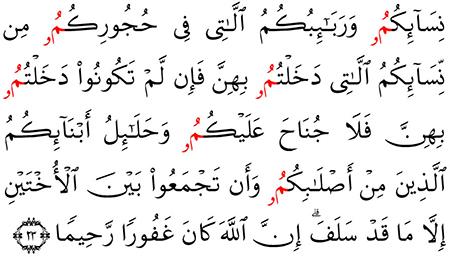 نِسَآئِكُمُۥ وَرَبَـٰٓئِبُكُمُ ٱلَّـٰتِى فِى حُجُورِكُمُۥ مِن
نِّسَآئِكُمُ ٱلَّـٰتِى دَخَلْتُمُۥ بِهِنَّ فَإِن لَّمْ تَكُونُوا۟ دَخَلْتُمُۥ
بِهِنَّ فَلَا جُنَاحَ عَلَيْكُمُۥ وَحَلَـٰٓئِلُ أَبْنَآئِكُمُ
ٱلَّذِينَ مِنْ أَصْلَـٰبِكُمُۥ وَأَن تَجْمَعُوا۟ بَيْنَ ٱلْأُخْتَيْنِ
إِلَّا مَا قَدْ سَلَفَ ۗ إِنَّ ٱللَّهَ كَانَ غَفُورًا رَّحِيمًا ٢٣